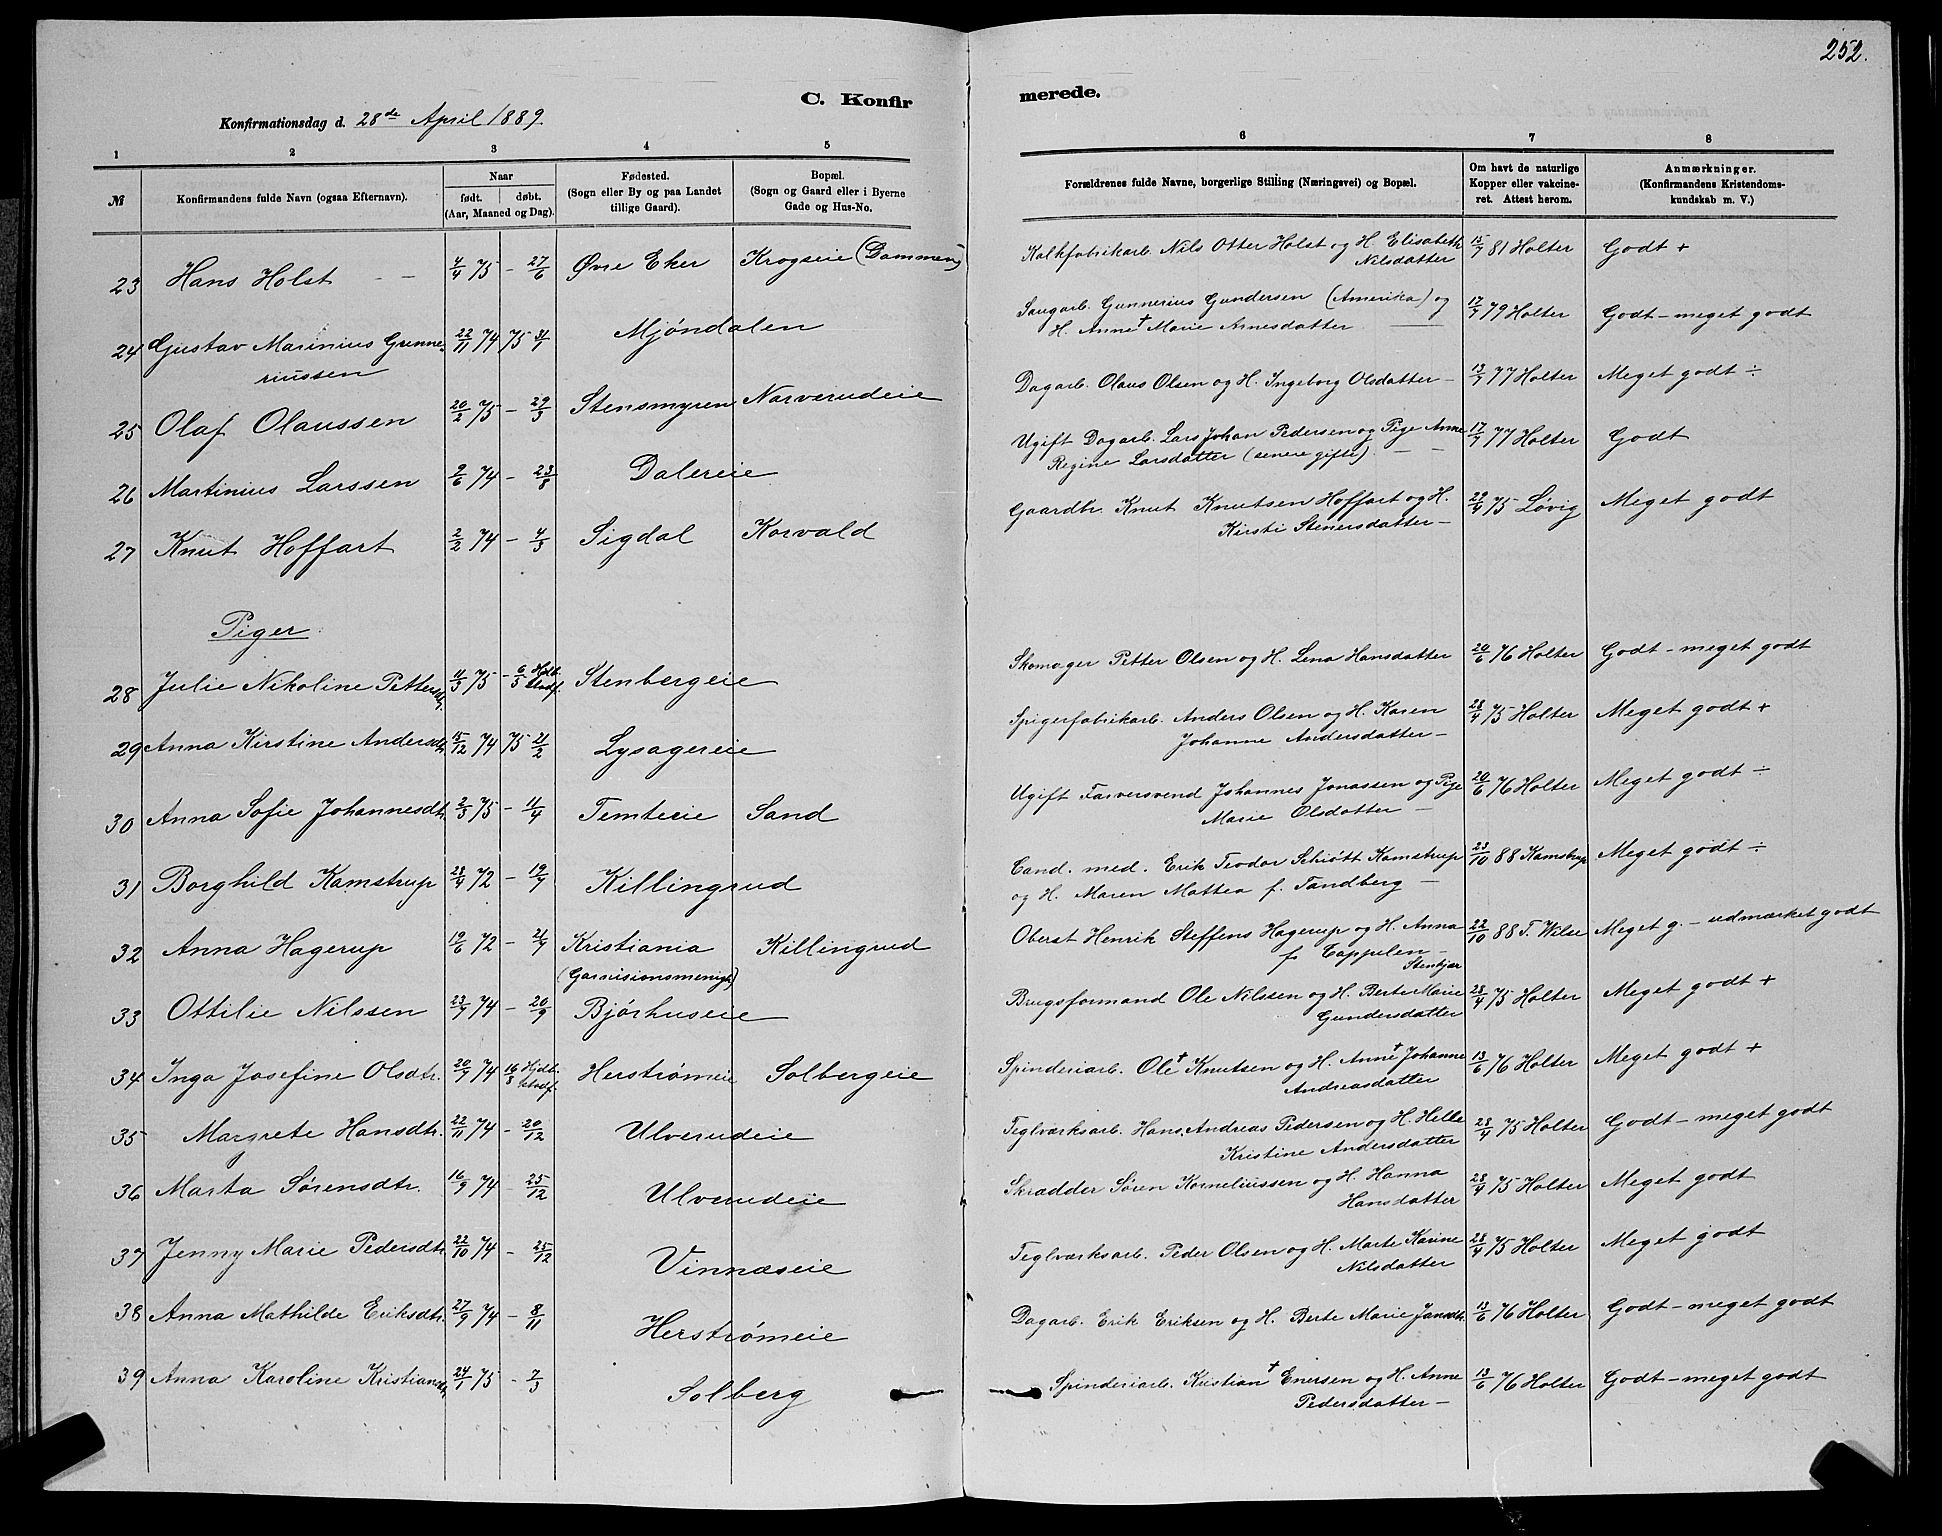 252.
C. Konfirmerede.
Konfirmationsdag d. 28de April 1889.
1 2 3 4 5 6 7 8
№ | Konfirmandens fulde Navn (ogsaa Efternavn). | Naar født. døbt. (Aar, Maaned og Dag). | Fødested. (Sogn eller By og paa Landet tillige Gaard). | Bopæl. (Sogn og Gaard eller i Byerne Gade og Hus-No. | Forældrenes fulde Navne, borgerlige Stilling (Næringsvei) og Bopæl. | Om havt de naturlige Kopper eller vakcineret. Attest herom. | Anmærkninger. (Konfirmandens Kristendomskundskab m. V.)
23 Hans Holst — 4/4 75 – 27/6 Øvre Eker Krogseie (Dammen) Kalkfabrikarb. Nils Otter Holst og H. Elisabeth Nilsdatter 15/7 81 Holter Godt +
24 Gustav Marinius Gunneriussen 22/11 74 75 31/1 Mjøndalen Saugarb. Gunnerius Gundersen (Amerika) og H. Anne † Marie Arnesdatter — 17/7 79 Holter Godt – meget godt
25 Olaf Olaussen 20/2 75 – 29/3 Stensmyren Narverudeie Dagarb. Olaus Olsen og H. Ingeborg Olsdatter – 13/7 77 Holter Meget godt ÷
26 Martinius Larssen 2/6 74 – 23/8 Dalereie Ugift Dagarb. Lars Johan Pedersen og Pige Anne Regine Larsdatter (senere gifte). — — 17/7 77 Holter Godt
27 Knut Hoffart 2/2 74 – 4/3 Sigdal Korvald Gaardbr. Knut Knutsen Hoffart og H. Kirsti Stenersdatter – 29/4 75 Løvig Meget godt
Piger.
28 Julie Nikoline Pettersdtr. 11/3 75 – 6/5 Hjdb. Stadf. Stenbergeie Skomager Petter Olsen og H. Lena Hansdatter 20/6 76 Holter Godt – meget godt
29 Anna Kirstine Andersdtr. 15/12 74 75 21/2 Lysagereie Spigerfabrikarb. Anders Olsen og H. Karen Johanne Andersdatter – 28/4 75 Holter Meget godt +
30 Anna Sofie Johannesdtr. 2/3 75 – 11/4 Temteeie Sand Ugift Farversvend Johannes Jonassen og Pige Marie Olsdatter – 20/6 76 Holter Meget godt ÷
31 Borghild Kamstrup 28/4 72 – 19/7 Killingrud Cand. med. Erik Teodor Schiøtt Kamstrup og H. Maren Mattea f. Tandberg – 23/10 88 Kamstrup Meget godt ÷
32 Anna Hagerup 19/6 72 – 21/9 Kristiania (Garnisionsmenigh) Killingrud Oberst Henrik Steffens Hagerup og H. Anna f. Cappelen – Stenkjær 22/10 88 T. Wilse Meget g. – udmærket godt
33 Ottilie Nilssen 23/7 74 – 20/9 Bjørhuseie Brugsformand Ole Nilssen og H. Berte Marie Gundersdatter 28/4 75 Holter Meget godt +
34 Inga Josefine Olsdtr. 20/7 74 16/8 Hjdb. Stadf. Herstrømeie Solbergeie Spinderiarb. Ole † Knutsen og H. Anne † Johanne Andreasdatter 13/6 76 Holter Meget godt +
35 Margrete Hansdtr. 22/11 74 – 20/12 Ulverudeie Teglværksarb. Hans Andreas Pedersen og H. Helle Kristine Andersdatter 28/4 75 Holter Godt – meget godt
36 Marta Sørensdtr. 16/9 74 – 25/12 Ulverudeie Skradder Søren Korneliussen og H. Hanna Hansdatter 28/4 75 Holter Meget godt
37 Jenny Marie Pedersdtr. 22/10 74 – 25/12 Vinnæseie Teglværksarb. Peder Olsen og H. Marte Karine Nilsdatter 28/4 75 Holter Meget godt
38 Anna Mathilde Eriksdtr. 27/9 74 – 8/11 Herstrømeie Dagarb. Erik Eriksen og H. Berte Marie Jansdtr. 13/6 76 Holter Godt – meget godt
39 Anna Karoline Kristiansdtr. 24/1 75 – 7/3 Solberg Spinderiarb. Kristian † Enersen og H. Anne Pedersdatter – 13/6 76 Holter Godt – meget godt